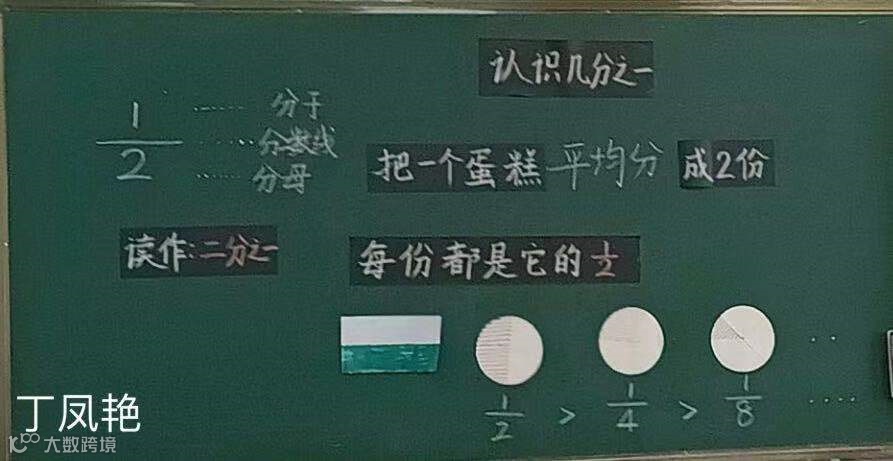 认识几分之一
1/2
分子
分数线
分母
把一个蛋糕 平均分 成2份
读作:二分之一
每份都是它的1/2
1/2 > 1/4 > 1/8 ....
丁凤艳
大数跨境